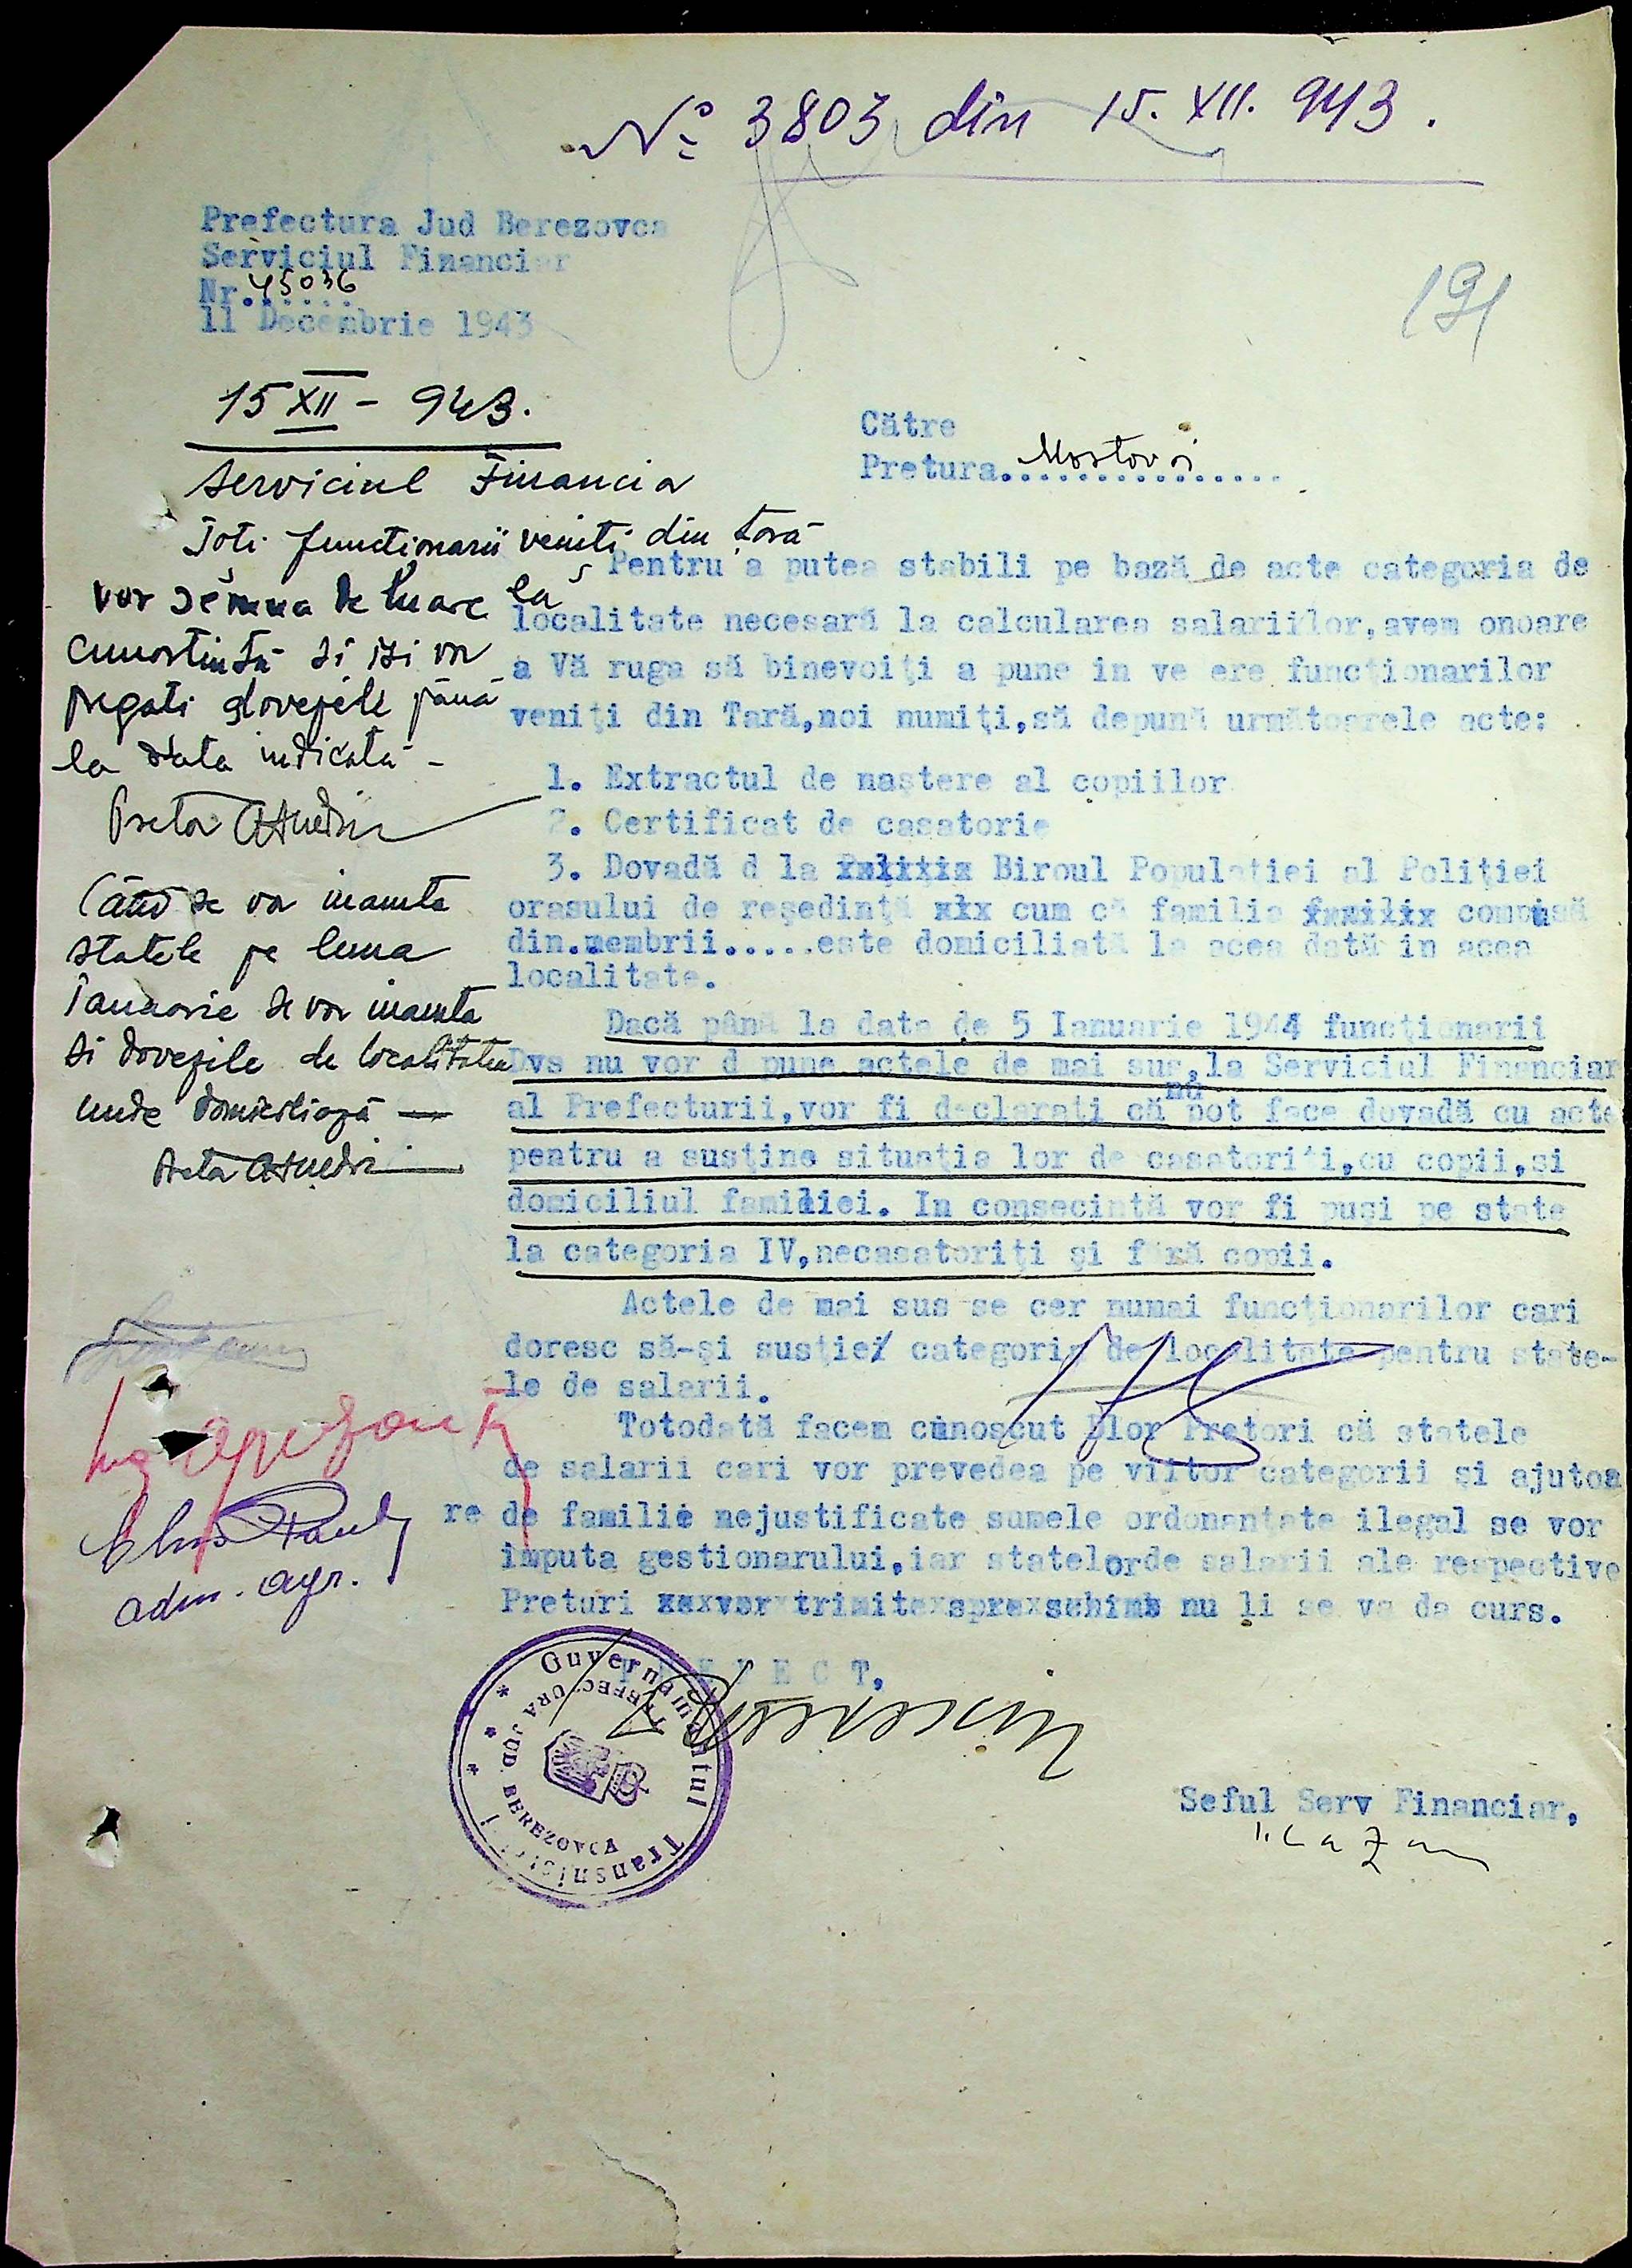 Nº 3803 din 15. XII. 943.
191
Prefectura Jud Berezovca
Serviciul Financiar
Nr. 45036
11 Decembrie 1943
15 XII - 943.
Serviciul Financia
Toti functionarii veniti din tară
vor semna de luare la
cunostintă si isi vor
pregati dovezile până
la data indicată -
Pretor
Când se vor inainta
statele pe luna
Ianuarie se vor inainta
si dovezile de localitatea
unde domiciliază -
Către
Pretura..Mostovoi..
Pentru a putea stabili pe bază de acte categoria de
localitate necesară la calcularea salariilor,avem onoare
a Vă ruga să binevoiţi a pune in ve ere funcţionarilor
veniţi din Tară,noi numiţi,să depună următoarele acte:
1. Extractul de naştere al copiilor
2. Certificat de casatorie
3. Dovadă d la Biroul Populaţiei al Poliţiei
orasului de reşedinţă cum că familia compusă
din.membrii.....este domiciliată la acea dată in acea
localitate.
Dacă până la data de 5 Ianuarie 1944 funcţionarii
Dvs nu vor d pune actele de mai sus,la Serviciul Financiar
al Prefecturii,vor fi declaraţi că nu pot face dovadă cu acte
pentru a susţine situaţia lor de casatoriţi,cu copii,si
domiciliul familiei. In consecintă vor fi puşi pe state
la categoria IV,necasatoriţi şi fără copii.
Actele de mai sus se cer numai funcţionarilor cari
doresc să-şi susţie/ categoria de localitate pentru state-
le de salarii.
Totodată facem cunoscut Dlor Pretori că statele
de salarii cari vor prevedea pe viitor categorii şi ajutoa
re de familie nejustificate sumele ordonanţate ilegal se vor
imputa gestionarului,iar statelor de salarii ale respective
Preturi nu li se va da curs.
adm. agr.
P R E F E C T,
Guvernamentul Transnistriei
PREFECTURA JUD. BEREZOVCA
Seful Serv Financiar,